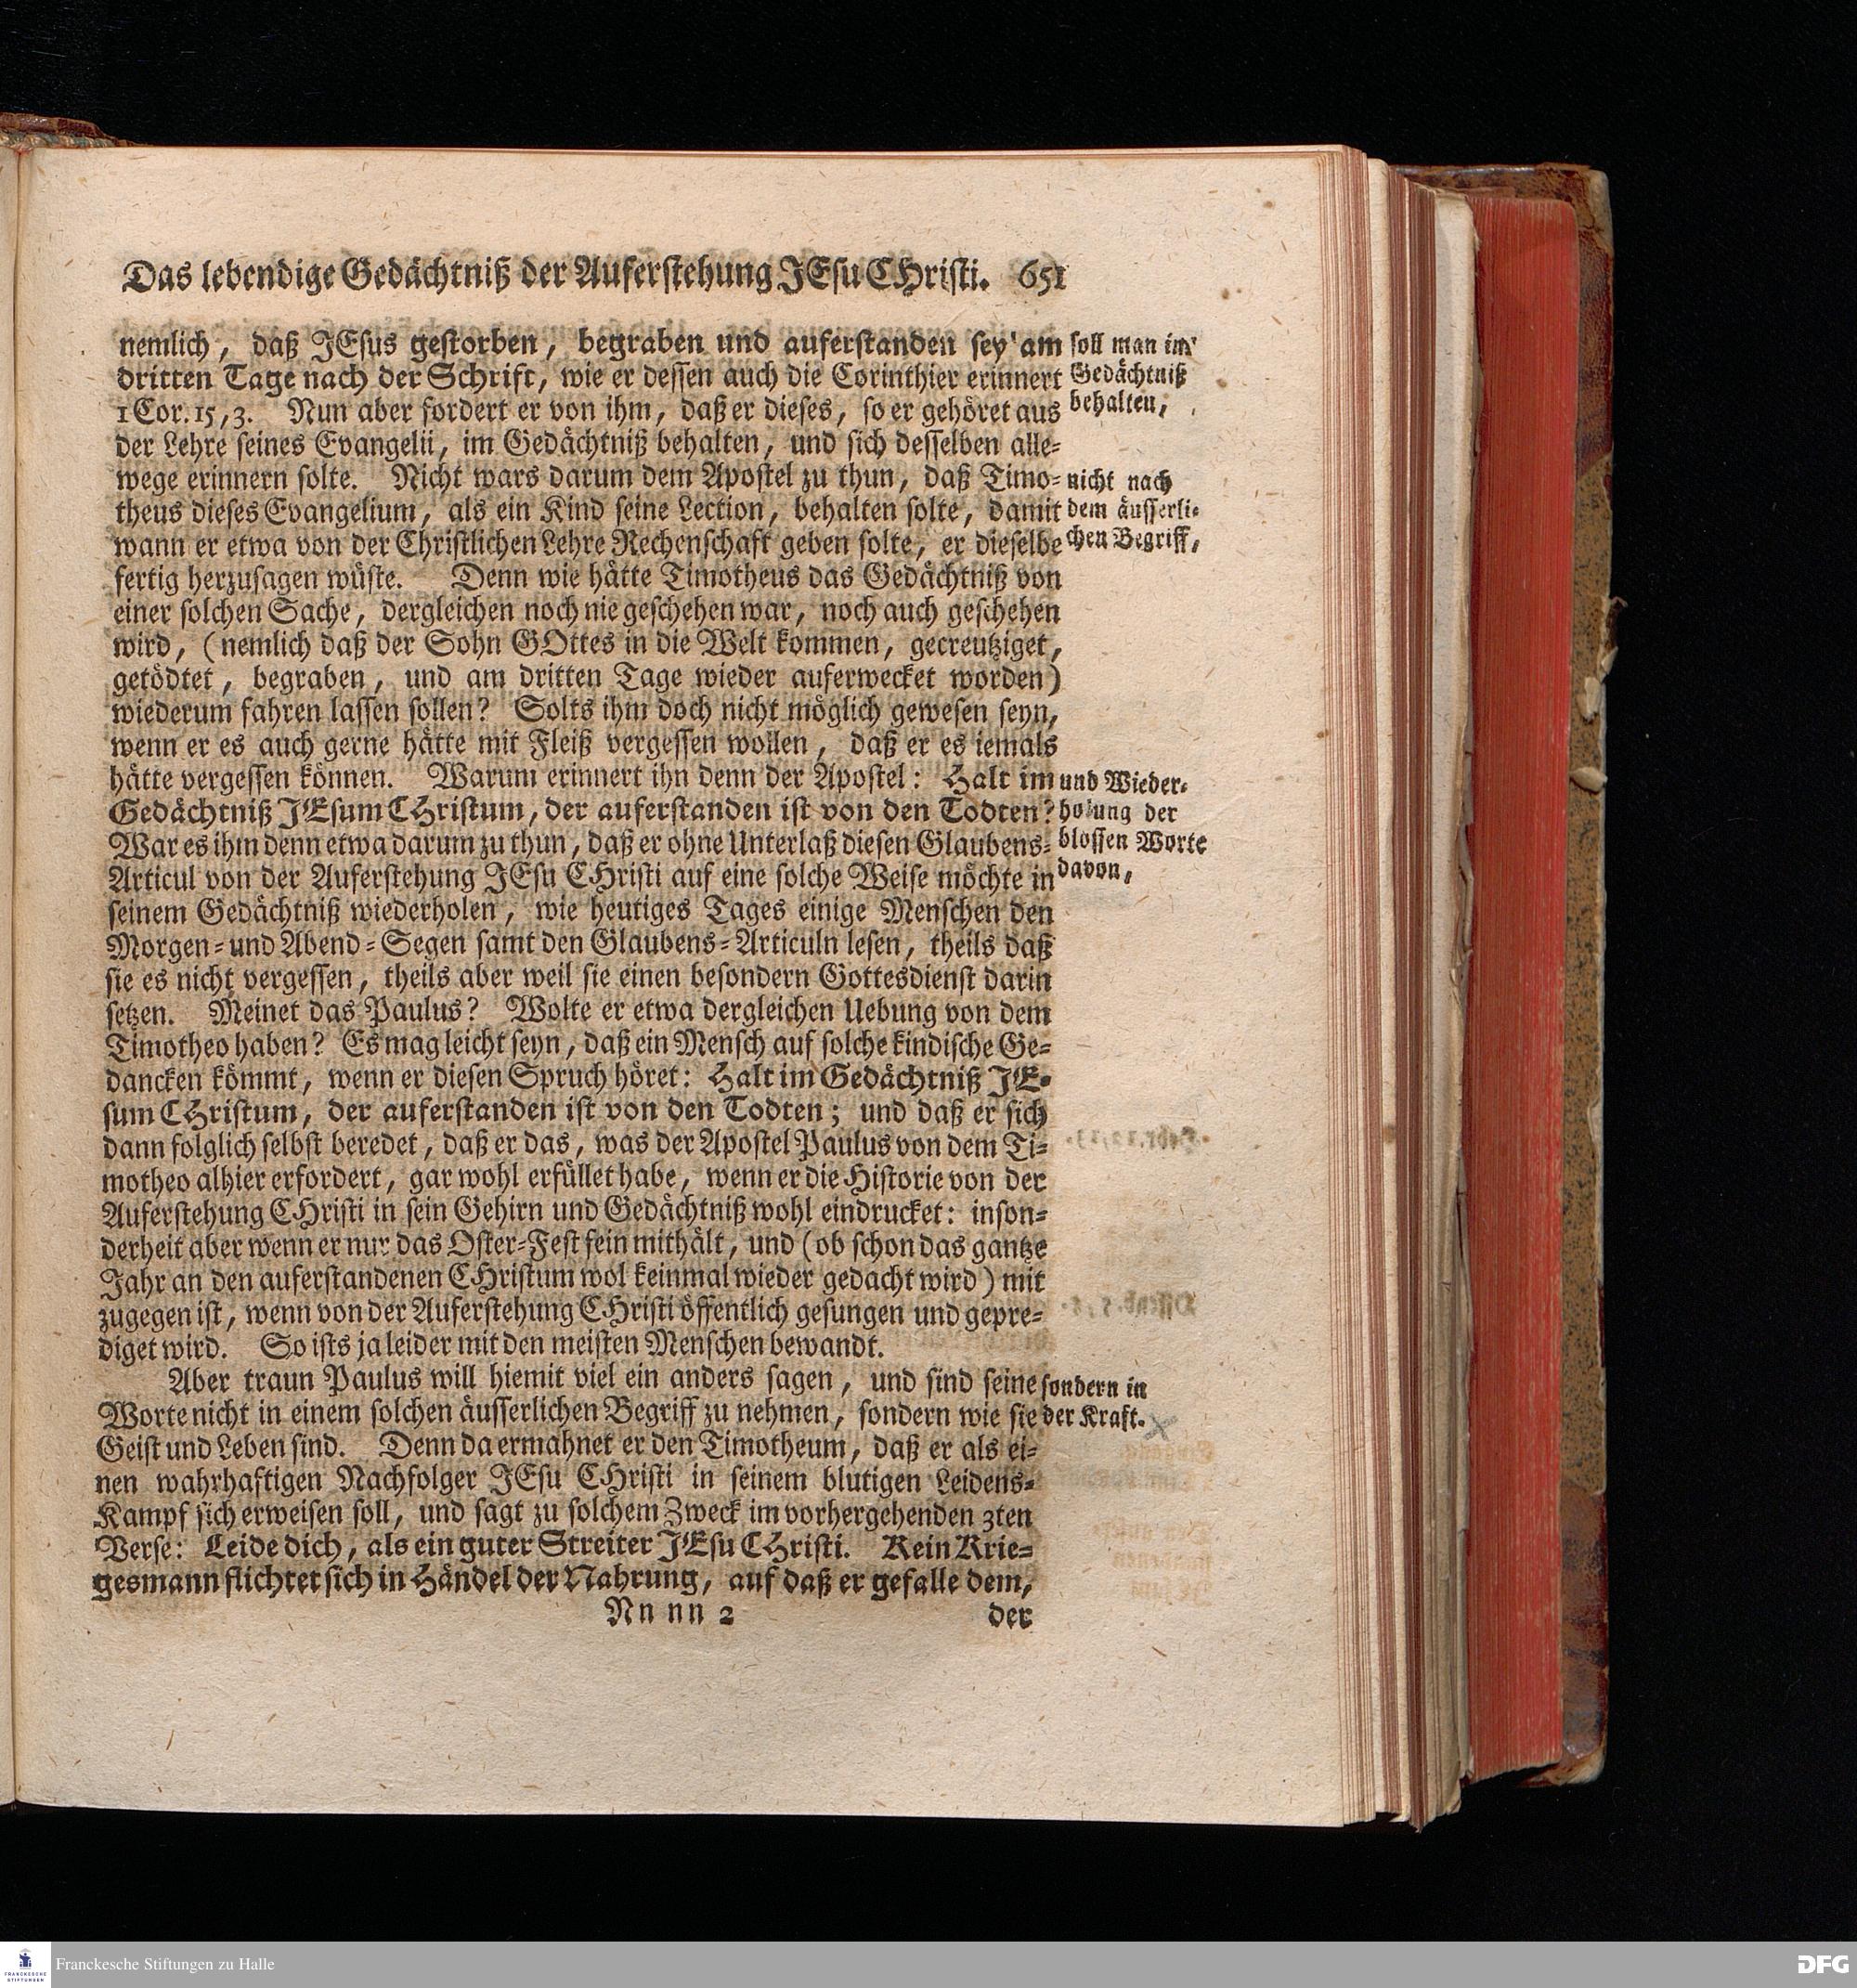 Das lebendige Gedächtniß der Auferstehung JEsu CHristi. 651
nemlich, daß JEsus gestorben, begraben und auferstanden sey am
dritten Tage nach der Schrift, wie er dessen auch die Corinthier erinnert
1 Cor. 15, 3. Nun aber fordert er von ihm, daß er dieses, so er gehöret aus
der Lehre seines Evangelii, im Gedächtniß behalten, und sich desselben alle-
wege erinnern solte. Nicht wars darum dem Apostel zu thun, daß Timo-
theus dieses Evangelium, als ein Kind seine Lection, behalten solte, damit
wann er etwa von der Christlichen Lehre Rechenschaft geben solte, er dieselbe
fertig herzusagen wüste. Denn wie hätte Timotheus das Gedächtniß von
einer solchen Sache, dergleichen noch nie geschehen war, noch auch geschehen
wird, (nemlich daß der Sohn GOttes in die Welt kommen, gecreutziget,
getödtet, begraben, und am dritten Tage wieder auferwecket worden)
wiederum fahren lassen sollen? Solts ihm doch nicht möglich gewesen seyn,
wenn er es auch gerne hätte mit Fleiß vergessen wollen, daß er es iemals
hätte vergessen können. Warum erinnert ihn denn der Apostel: Halt im
Gedächtniß JEsum CHristum, der auferstanden ist von den Todten?
War es ihm denn etwa darum zu thun, daß er ohne Unterlaß diesen Glaubens-
Articul von der Auferstehung JEsu CHristi auf eine solche Weise möchte in
seinem Gedächtniß wiederholen, wie heutiges Tages einige Menschen den
Morgen- und Abend-Segen samt den Glaubens-Articuln lesen, theils daß
sie es nicht vergessen, theils aber weil sie einen besondern Gottesdienst darin
setzen. Meinet das Paulus? Wolte er etwa dergleichen Uebung von dem
Timotheo haben? Es mag leicht seyn, daß ein Mensch auf solche kindische Ge-
dancken kömmt, wenn er diesen Spruch höret: Halt im Gedächtniß JE-
sum CHristum, der auferstanden ist von den Todten; und daß er sich
dann folglich selbst beredet, daß er das, was der Apostel Paulus von dem Ti-
motheo alhier erfordert, gar wohl erfüllet habe, wenn er die Historie von der
Auferstehung CHristi in sein Gehirn und Gedächtniß wohl eindrucket: inson-
derheit aber wenn er nur das Oster-Fest fein mithält, und (ob schon das gantze
Jahr an den auferstandenen CHristum wol keinmal wieder gedacht wird) mit
zugegen ist, wenn von der Auferstehung CHristi öffentlich gesungen und gepre-
diget wird. So ists ja leider mit den meisten Menschen bewandt.
Aber traun Paulus will hiemit viel ein anders sagen, und sind seine
Worte nicht in einem solchen äusserlichen Begriff zu nehmen, sondern wie sie
Geist und Leben sind. Denn da ermahnet er den Timotheum, daß er als ei-
nen wahrhaftigen Nachfolger JEsu CHristi in seinem blutigen Leidens-
Kampf sich erweisen soll, und sagt zu solchem Zweck im vorhergehenden 3ten
Verse: Leide dich, als ein guter Streiter JEsu CHristi. Kein Krie-
gesmann flichtet sich in Händel der Nahrung, auf daß er gefalle dem,
Nn nn 2 der
soll man im
Gedächtniß
behalten,
nicht nach
dem äusserli-
chen Begriff,
und Wieder-
holung der
blossen Worte
davon,
sondern in
der Kraft.
FRANCKESCHE
STIFTUNGEN
Franckesche Stiftungen zu Halle
DFG